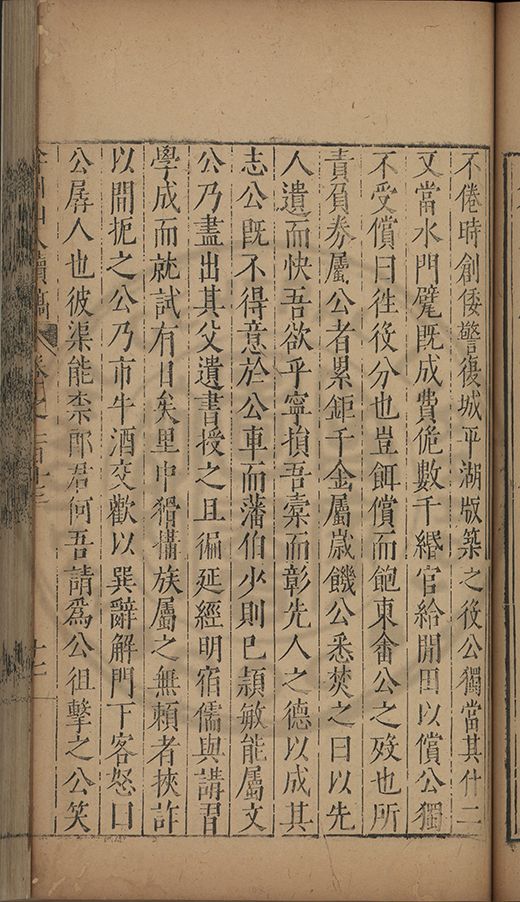 不倦時創倭警復城平湖版築之役公獨當其什二
又當水門甓既成費俺數千緡官給閒田以償公獨
不受償曰徃役分也豈餌償而飽東畲公之歿也所
責負券屬公者累鉅千金屬歲饑公悉焚之曰以先
人遺而快吾欲乎寧損吾槖而彰先人之德以成其
志公既不得意於公車而藩伯少則巳頴敏能屬文
公乃盡出其父遺書授之且徧延經明宿儒與講習
學成而就試有日矣里中猾搆族屬之無頼者挾詐
以間扼之公乃市牛酒交歡以巽辭解門下客怒曰
公孱人也彼渠能柰郎君何吾請爲公徂擊之公笑
山人續稿 卷之一百十三 十二